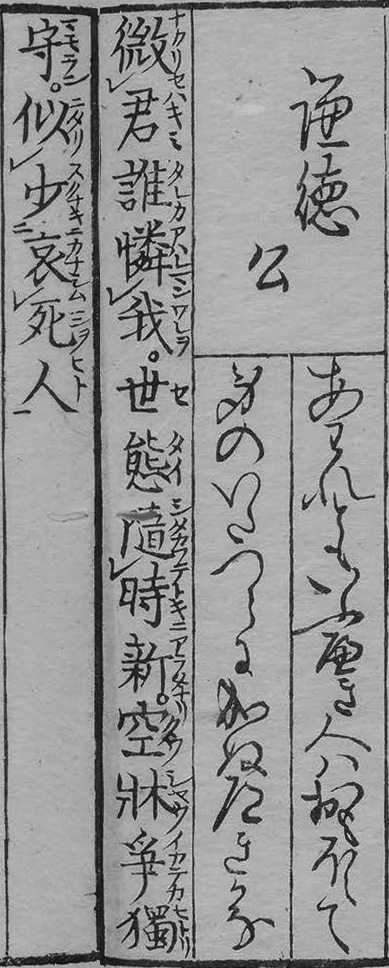 謙徳公
あわれともいふへき人ハおもほえて
身のいたつらに成ぬへきかな
微君誰憐我。世態隨時新。空牀爭獨
守。似少哀死人